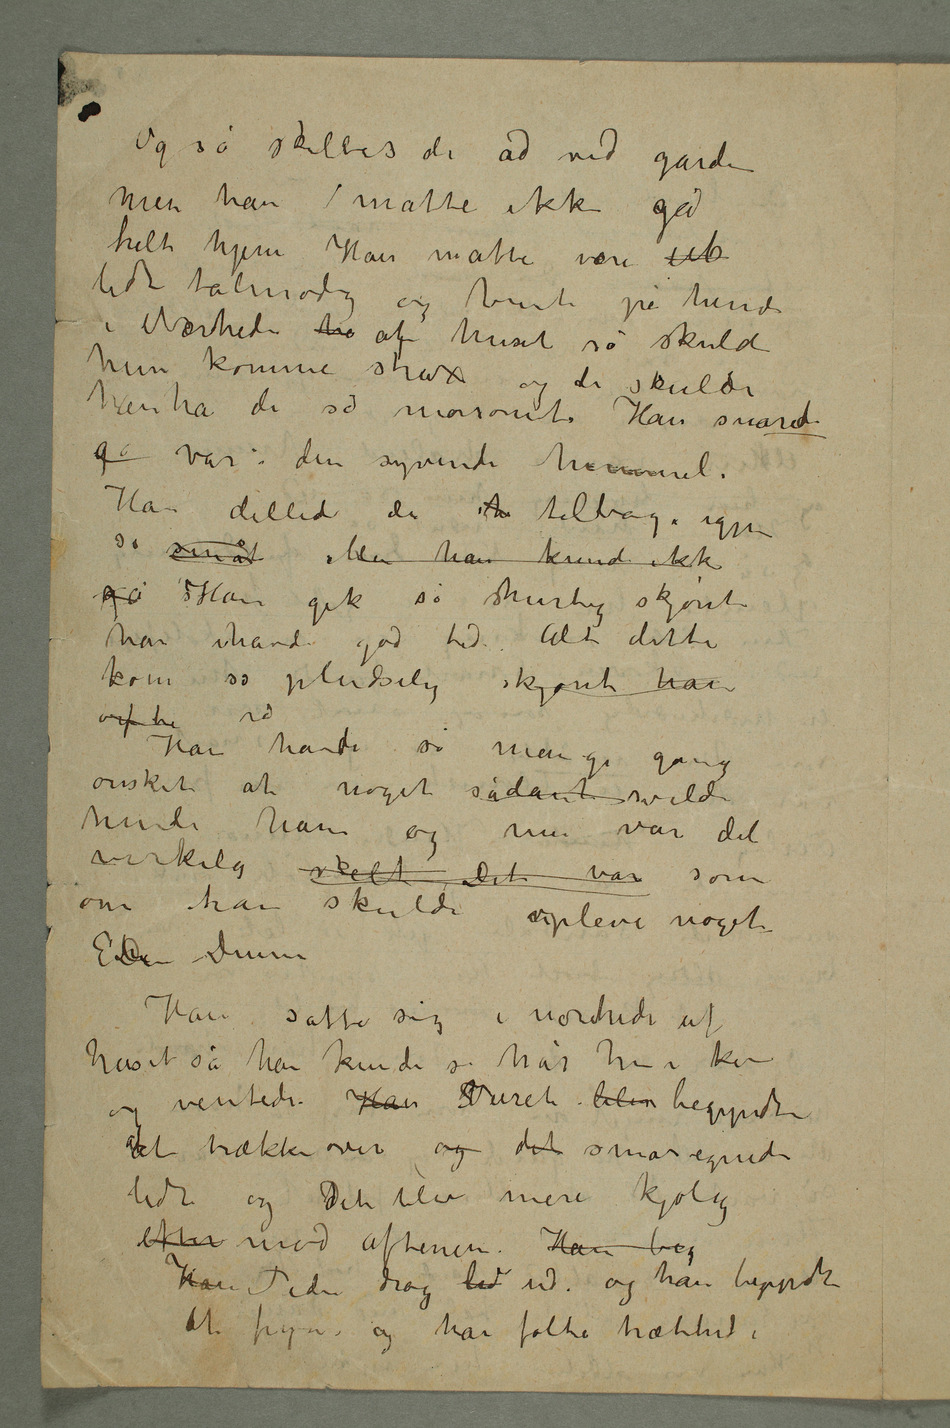 Og så skiltes de ad ved gården
men han måtte ikke gå
helt hjem Han måtte være
lidt tålmodig og vente på hende
i Nærheden af huset så skulde
hun komme strax og de skulde
ha det så morsomt. Han svarede
var i den syvende himmel.
Han dillede da tilbage igjen
så småt Men han kunde ikke
gå Han gik så hurtig skjønt
han havde god tid. Alt dette
kom så pludselig skjønt han
ofte
Han havde så mange gang
ønsket at noget sådant vilde
hende ham og nu var det
virkelig skeet Det var som
om han skulde opleve noget
En Drøm
Han satte sig i nærheden af
huset så han kunde se når hun kom
og ventede. Han Veiret blev begyndte
at trække over og det småregnede
lidt og Det blev mere kjølig
efter mod aftenen. Han beg
Han Tiden drog ud og han begyndte
at fryse og han følte træthed i